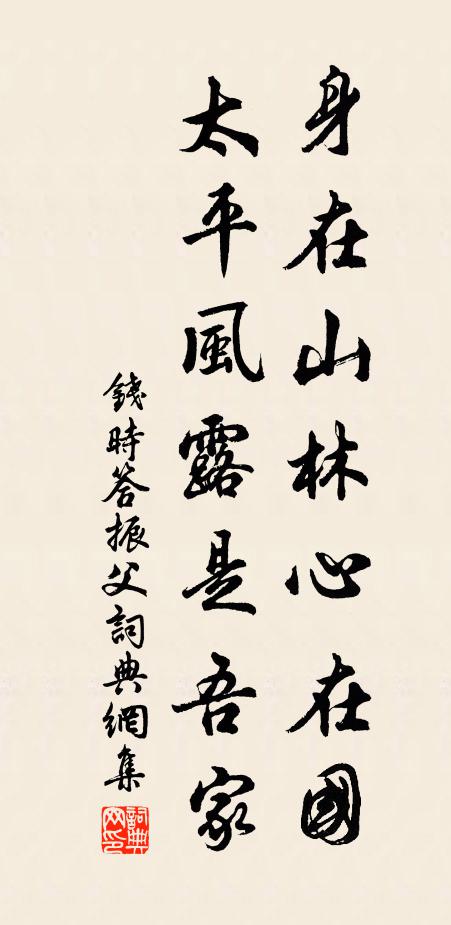 身在山林心在國
太平風露是吾家
錢時答振父詞典網集
詞典网印